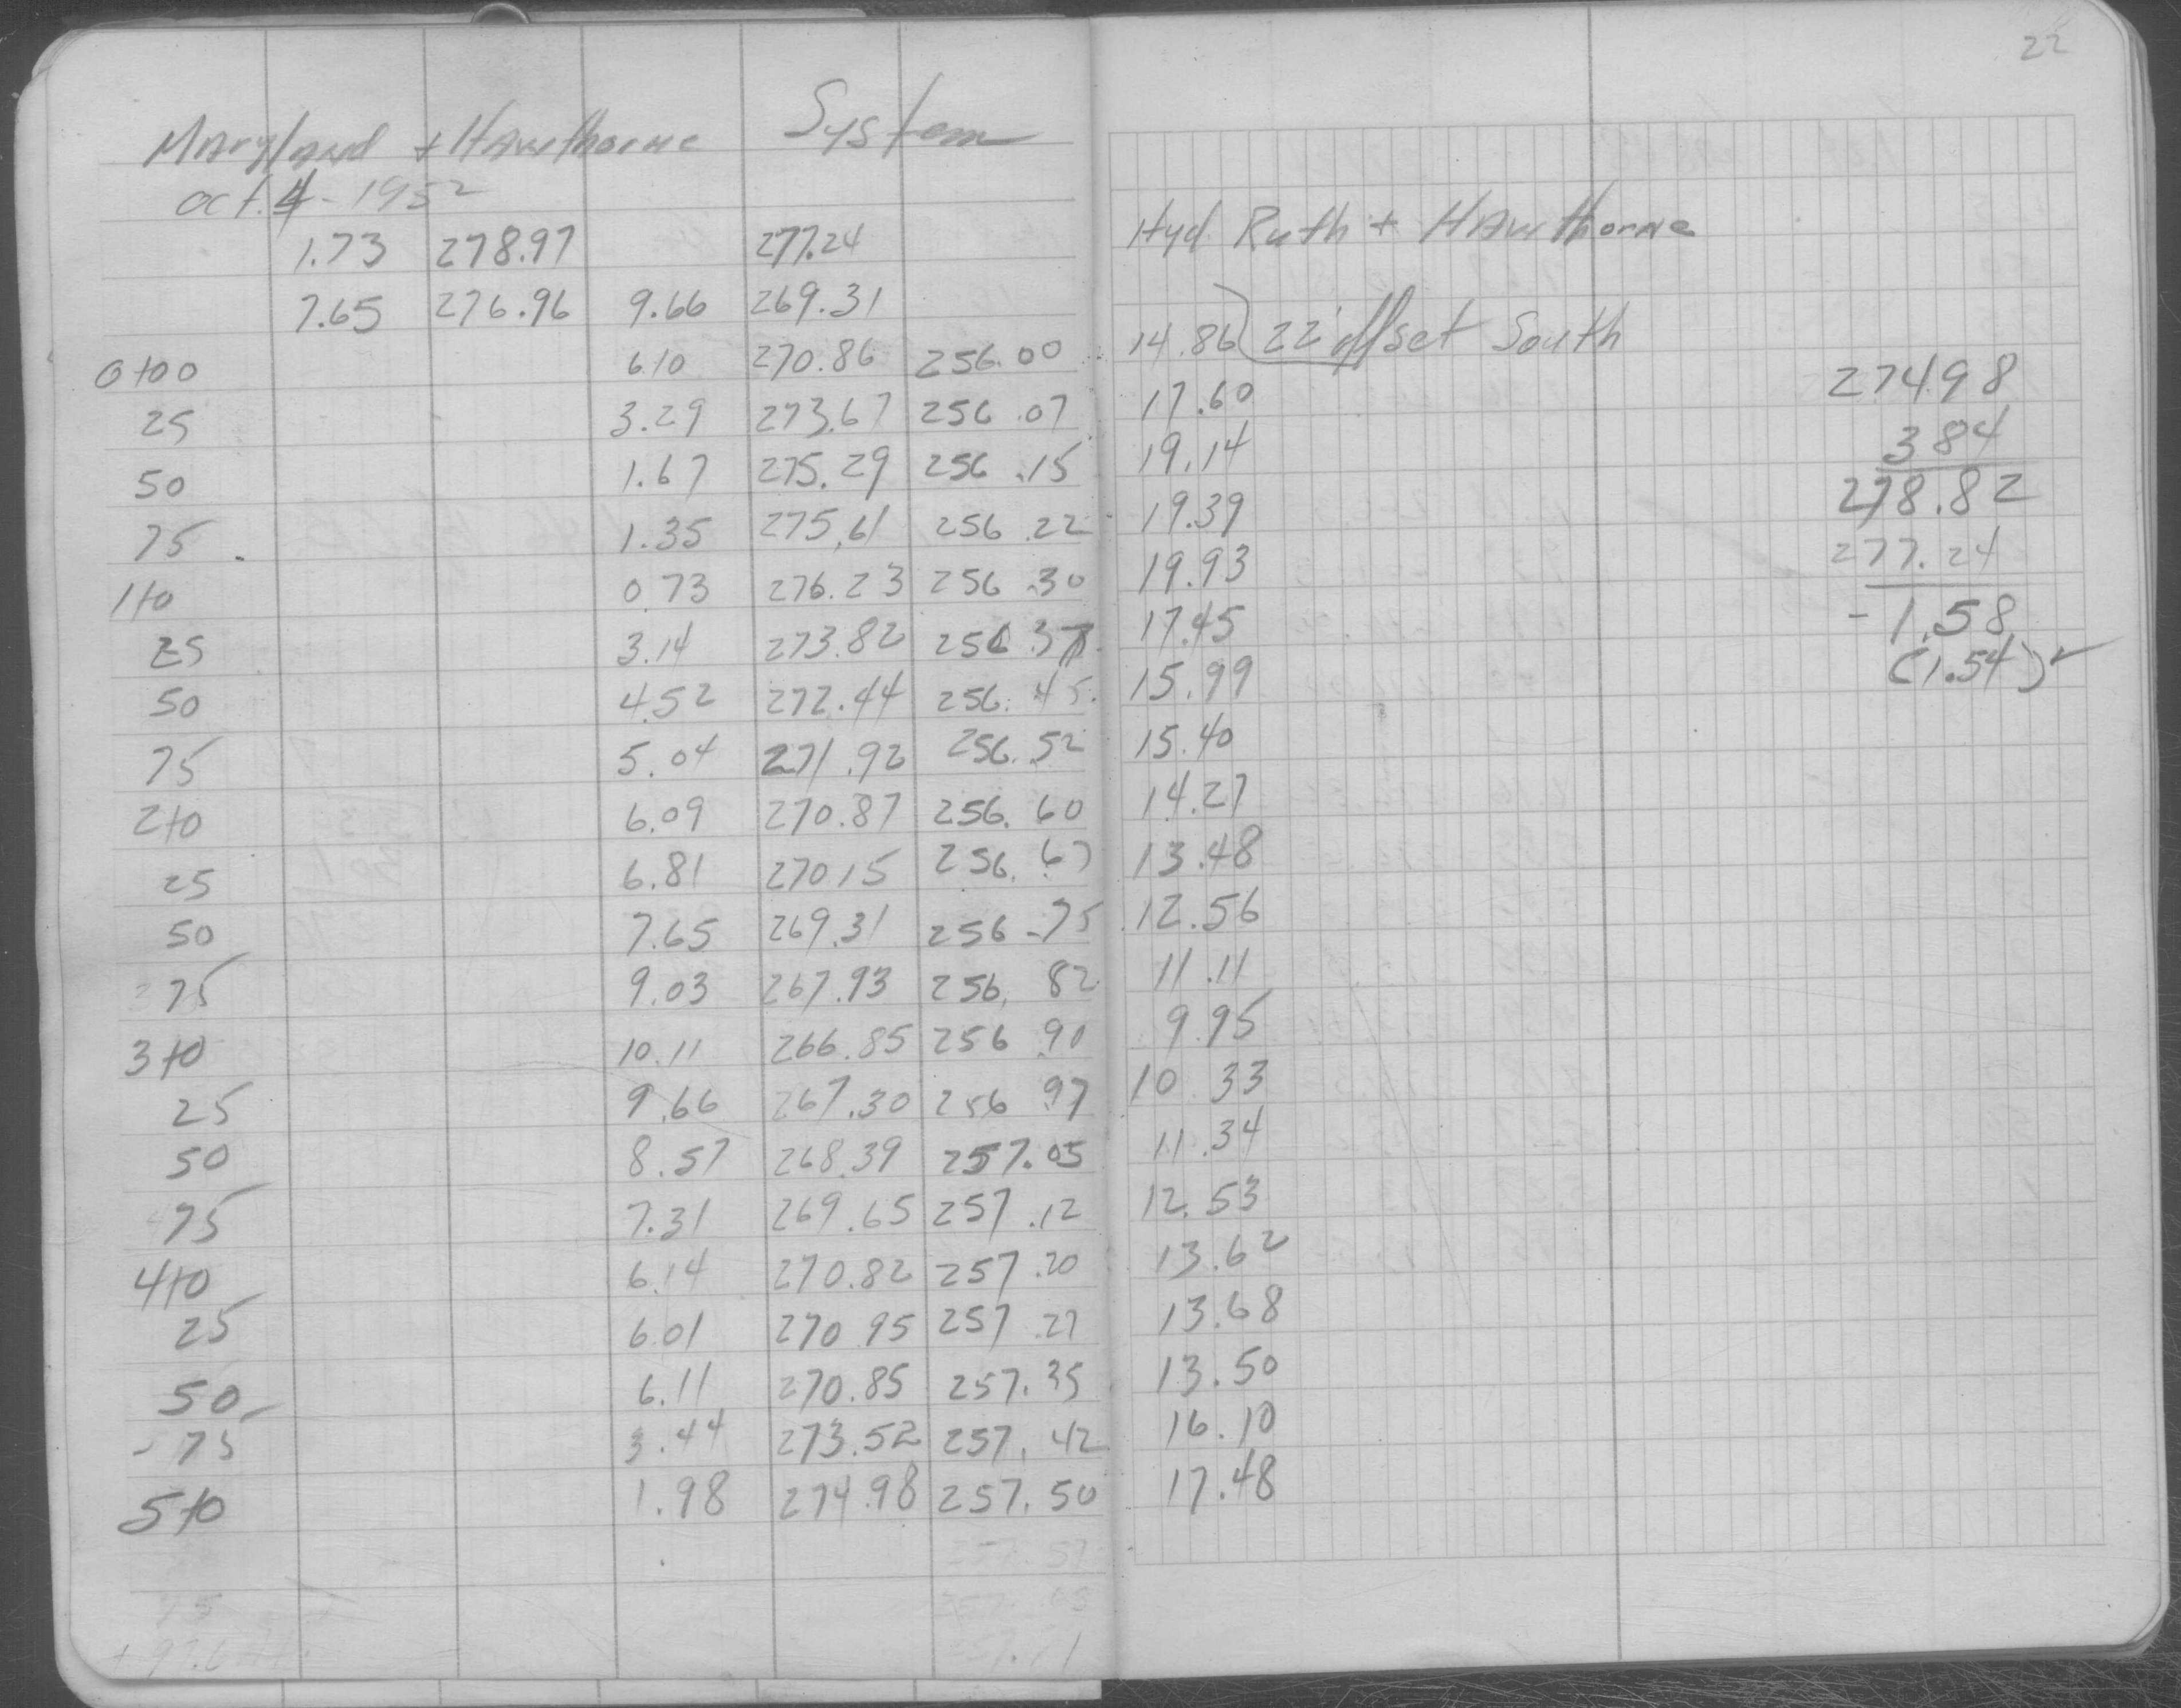 22
Maryland + Hawthorne System
Oct. 4 - 1952
1.73 278.97 277.24 Hyd Ruth + Hawthorne
7.65 276.96 9.66 269.31
0+00 6.10 270.86 256.00 14.86 22' offset South
25 3.29 273.67 256.07 17.60
50 1.67 275.29 256.15 19.14
75 1.35 275.61 256.22 19.39
1+0 0.73 276.23 256.30 19.93
25 3.14 273.82 256.37 17.45
50 4.52 272.44 256.45 15.99
75 5.04 271.92 256.52 15.40
2+0 6.09 270.87 256.60 14.27
25 6.81 270.15 256.67 13.48
50 7.65 269.31 256.75 12.56
75 9.03 267.93 256.82 11.11
3+0 10.11 266.85 256.90 9.95
25 9.66 267.30 256.97 10.33
50 8.57 268.39 257.05 11.34
75 7.31 269.65 257.12 12.53
4+0 6.14 270.82 257.20 13.62
25 6.01 270.95 257.27 13.68
50 6.11 270.85 257.35 13.50
75 3.44 273.52 257.42 16.10
5+0 1.98 274.98 257.50 17.48
274.98
3.84
278.82
277.24
- 1.58
(1.54) ✓
257.57
75